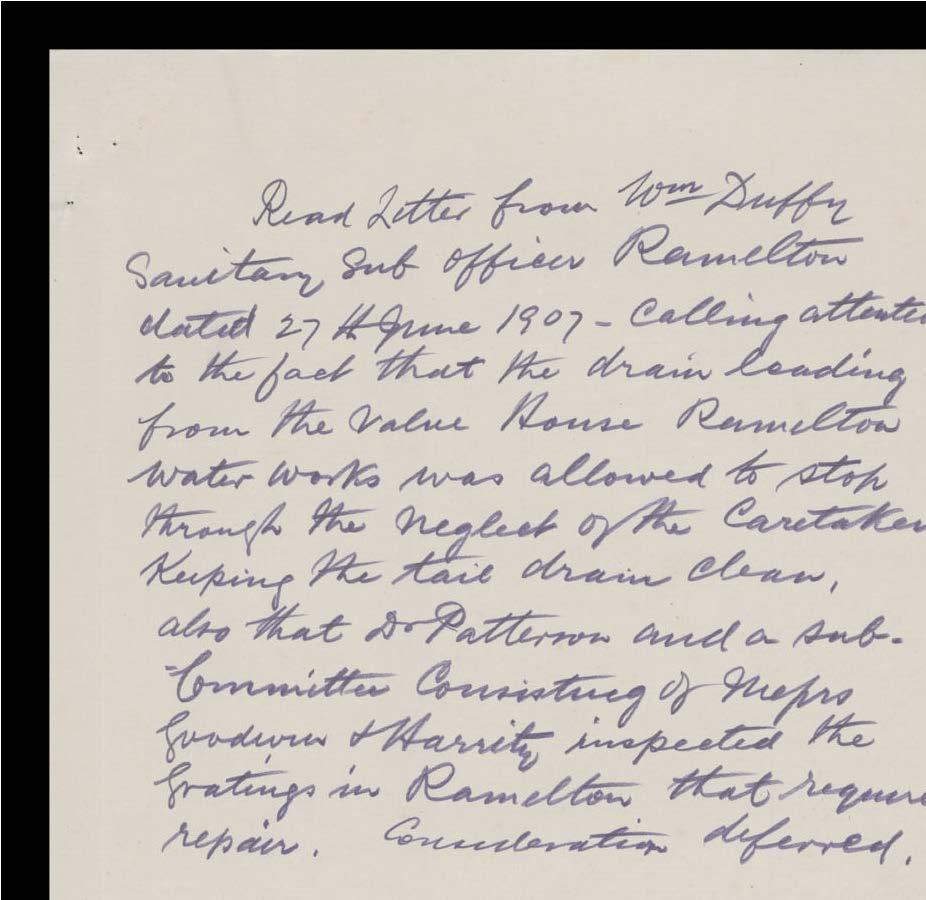 Read Letter from Wm Duffy
Sanitary Sub Officer Ramelton
dated 27th June 1907 - Calling attentio
to the fact that the drain leading
from the Valve House Ramelton
water works was allowed to stop
through the neglect of the Caretaker
Keeping the tail drain clean,
also that Dr Patterson and a sub-
Committee Consisting of Messrs
Goodwin & Harrity inspected the
Gratings in Ramelton that require
repair. Consideration deferred.